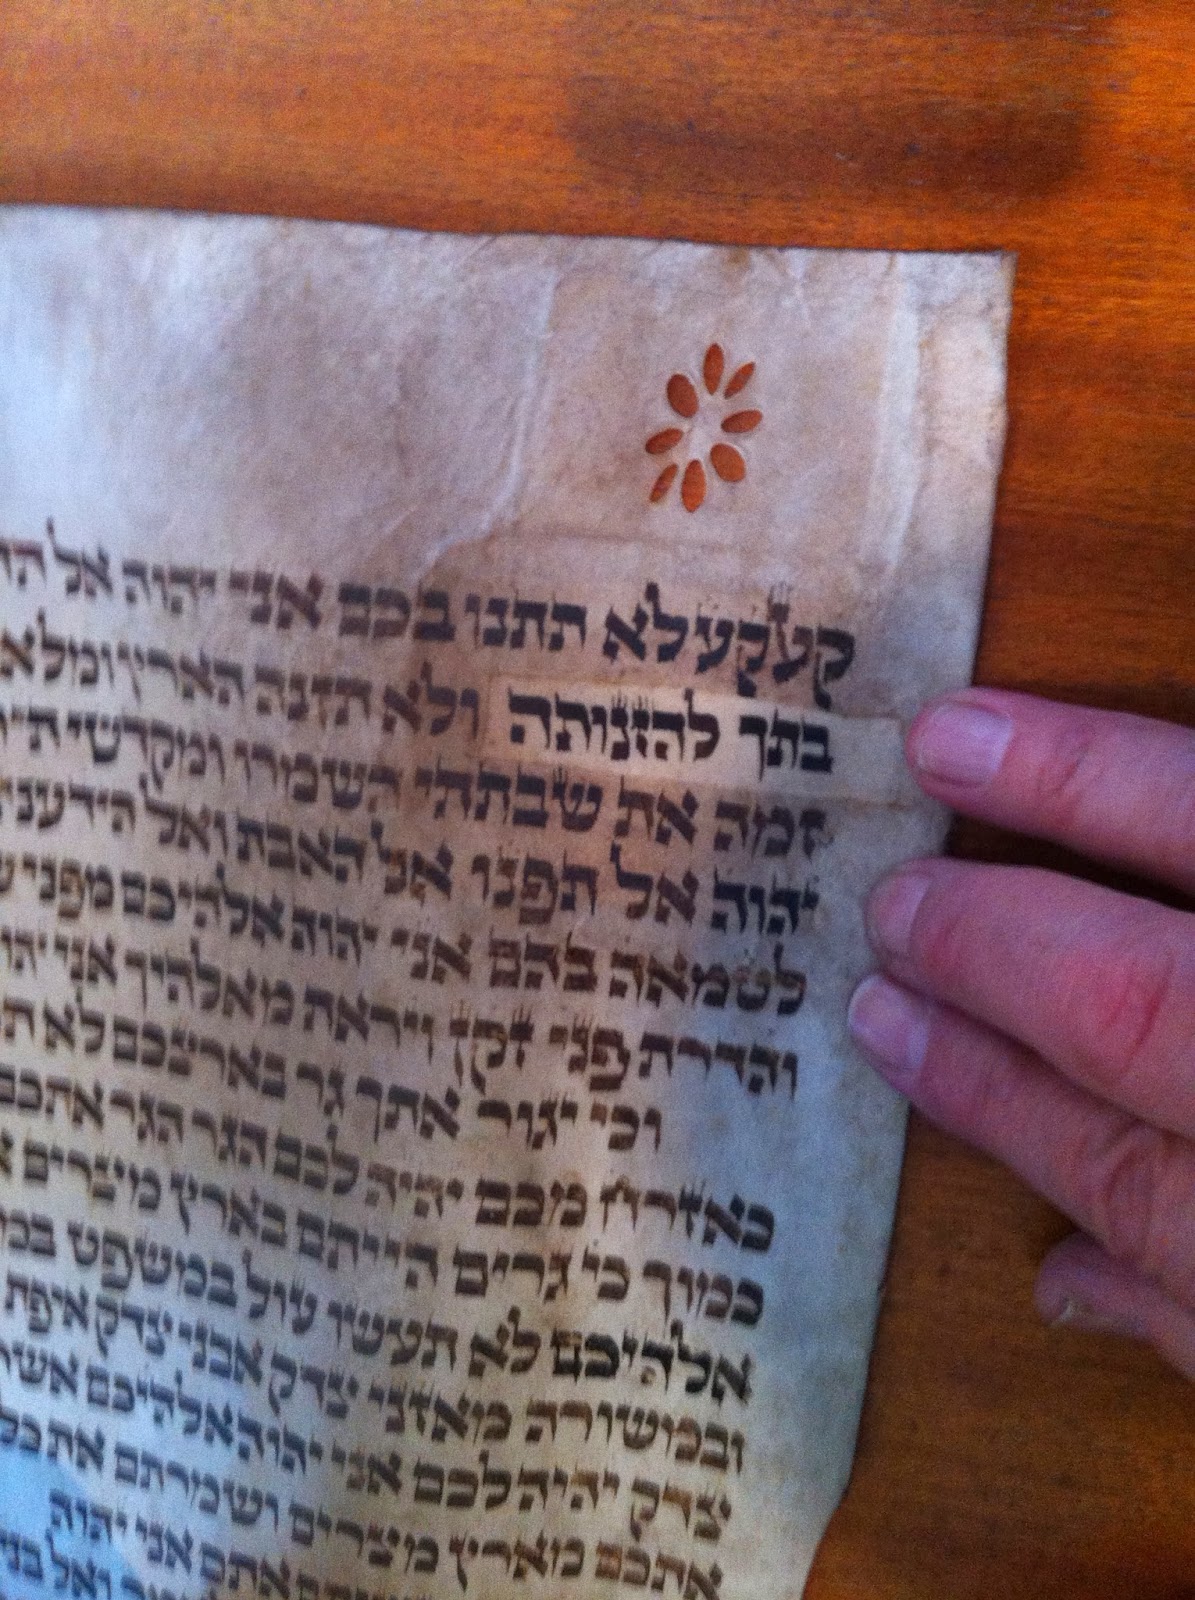 קעקע לא תתנו בכם אני יהוה אל
בתך להזנותה ולא תזנה הארץ ומלא
זמה את שבתתי תשמרו ומקדשי
יהוה אל תפנו אל האבת ואל הידענים
לטמאה בהם אני יהוה אלהיכם מפני
והדרת פני זקן ויראת מאלהיך אני
וכי יגור אתך גר בארצכם לא
כאזרח מכם יהיה לכם הגר הגר אתכם
כמוך כי גרים הייתם בארץ מצרים
אלהיכם לא תעשו עול במשפט
ובמשורה מאזני צדק אבני צדק איפת
צדק יהיה לכם אני יהוה אלהיכם אשר
אתכם מארץ מצרים ושמרתם את כל
אתם אני יהוה
ואל בני